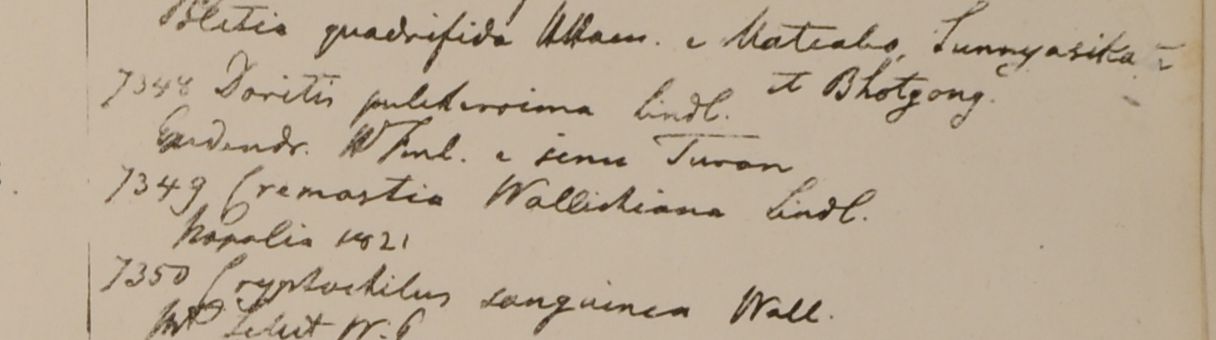 Bletia quadrifida e Mateabo, Sunnyasika
et Bhotgong.
7348 Doritis pulcherrima Lindl.
Epidendr. e sinu Turon
7349 Cremastia Wallichiana Lindl.
Napalia 1821
7350 Cryptochilus sanguinea Wall.